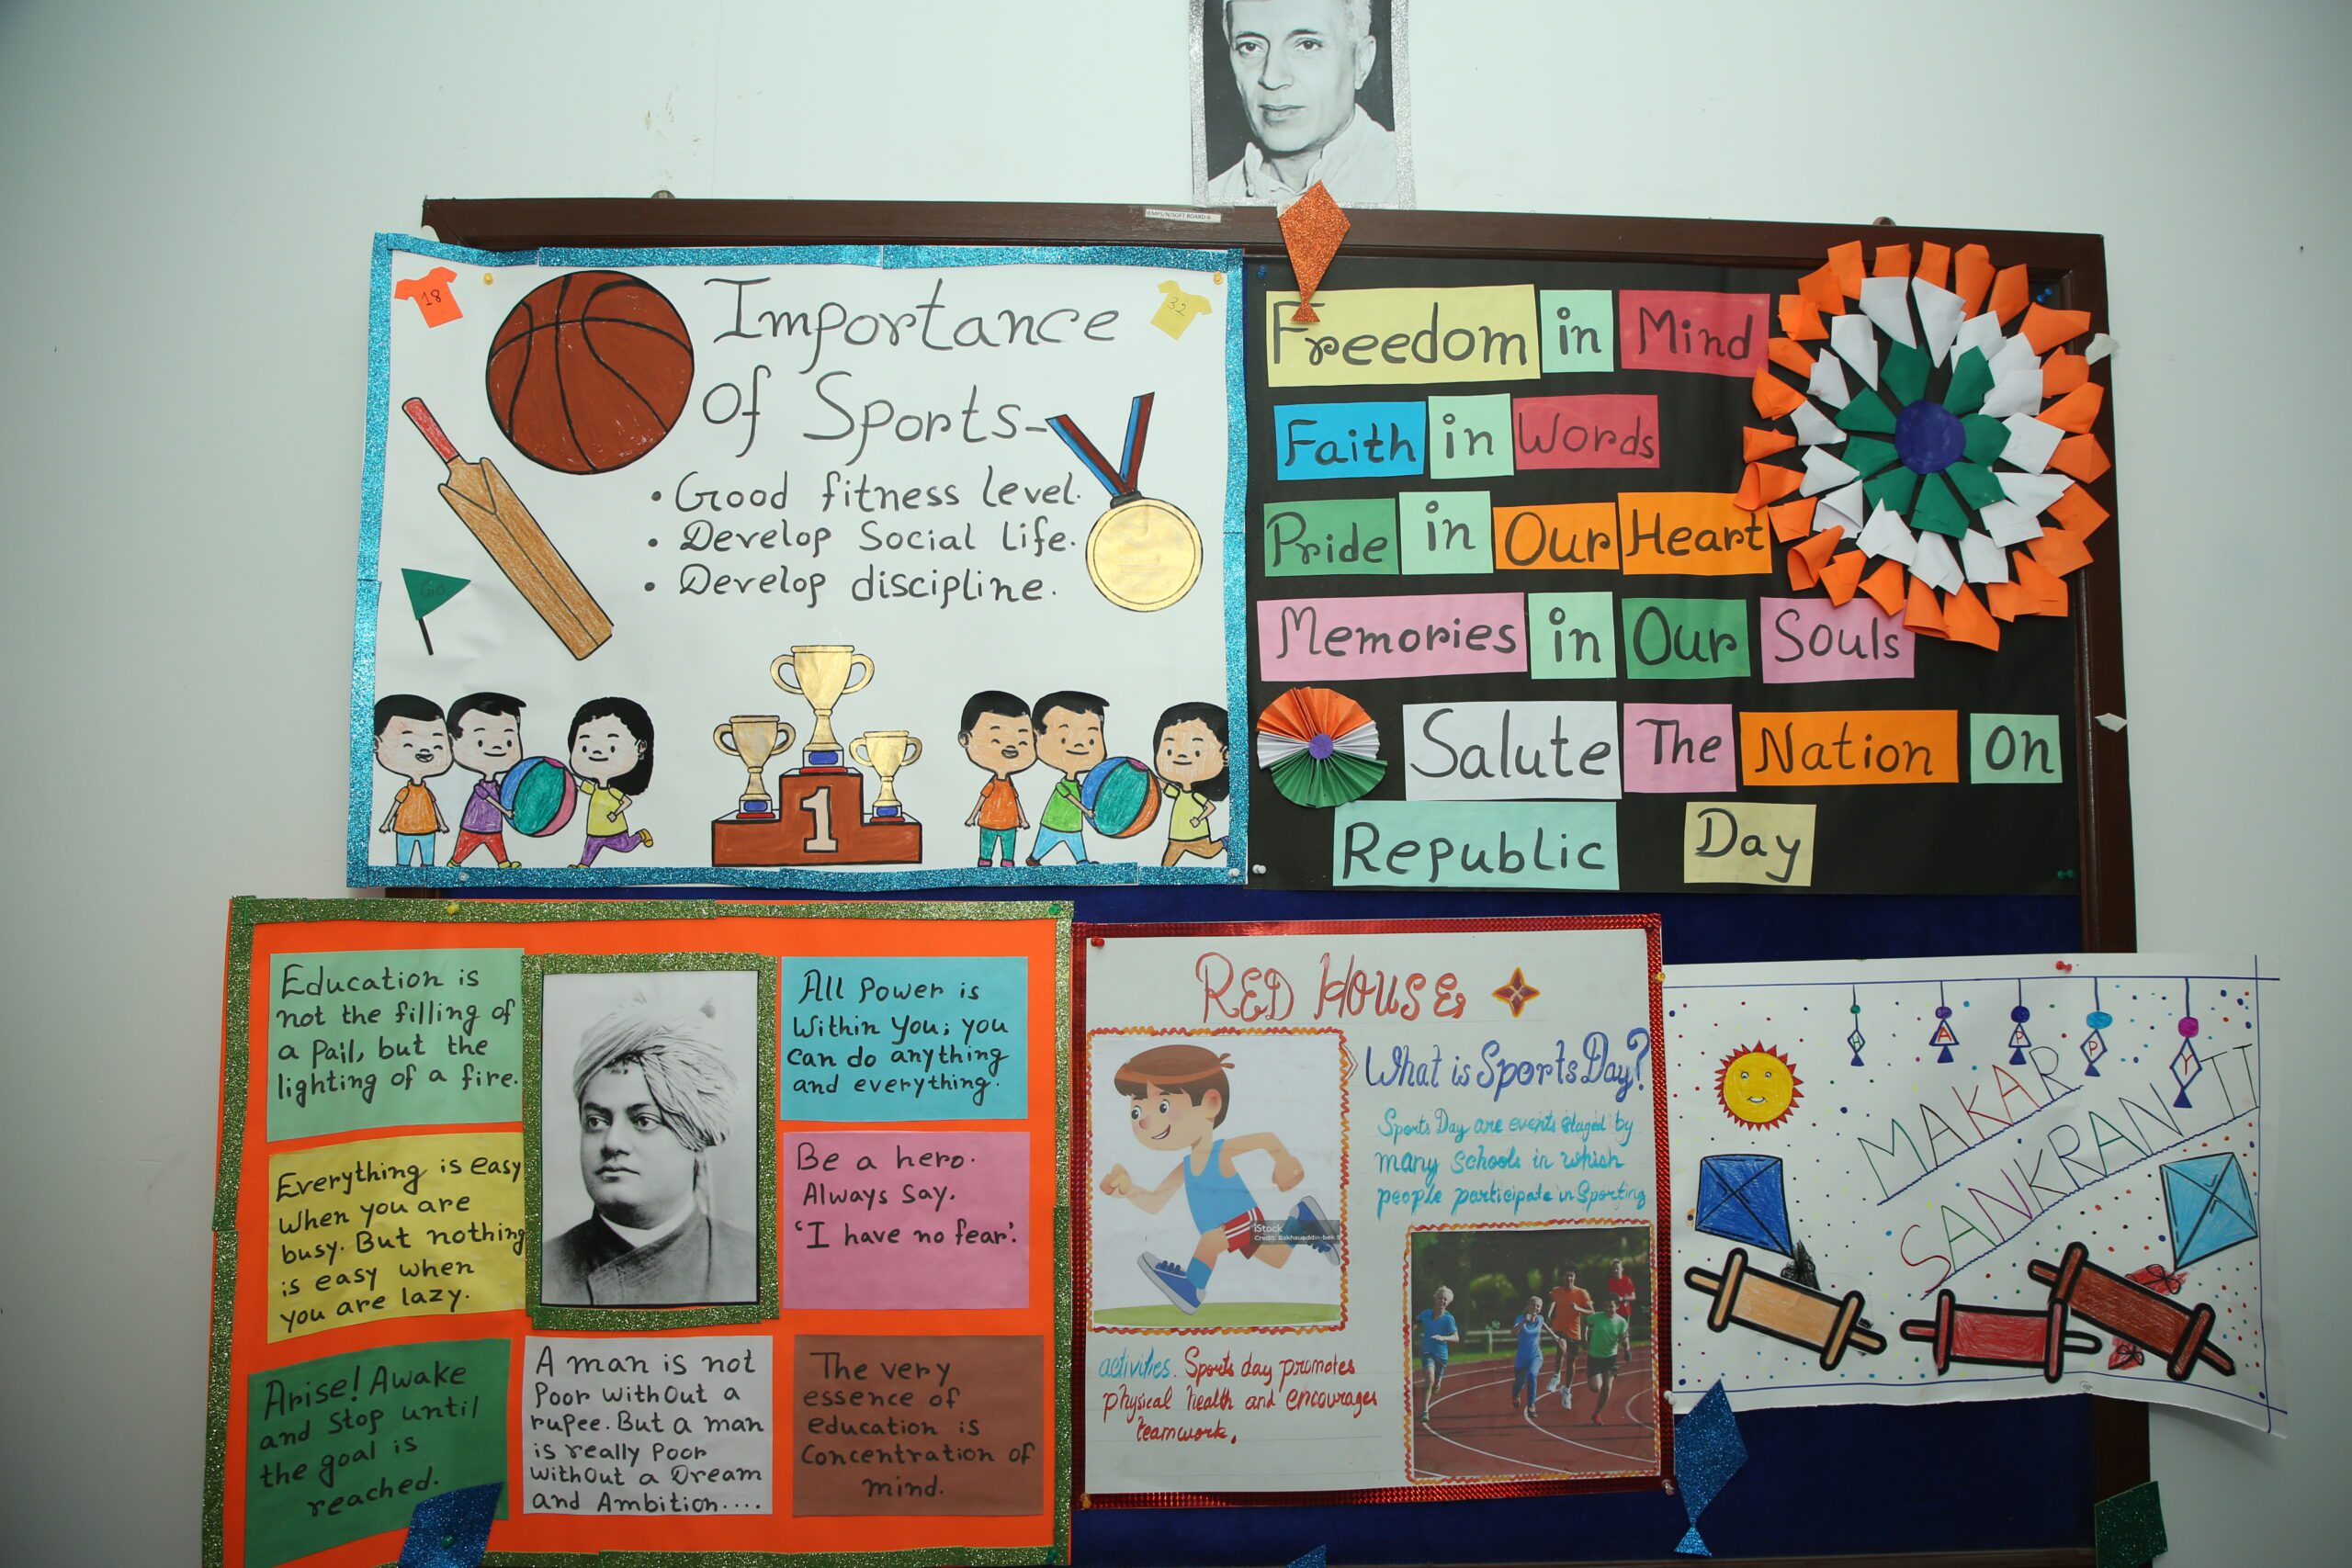 18
32
Importance
Of Sports-
• Good fitness level.
• Develop Social Life.
• Develop discipline.
Go
1
Freedom in Mind
Faith in Words
Pride in Our Heart
Memories in Our Souls
Salute The Nation on
Republic Day
Education is
not the filling of
a Pail, but the
lighting of a fire.
Everything is easy
When you are
busy. But nothing
is easy when
you are lazy.
Arise! Awake
and Stop until
the goal is
reached.
A man is not
Poor without a
rupee. But a man
is really Poor
without a Dream
and Ambition....
All Power is
Within You; you
can do anything
and everything.
Be a hero.
Always Say.
'I have no fear'.
The very
essence of
education is
Concentration of
mind.
RED HOUSE
What is Sports Day?
Sports Day are events staged by
many schools in which
people participate in Sporting
iStock
Credit: Bakhauaddin-bek
activities. Sports day promotes
physical health and encourages
teamwork.
HAPPY
MAKAR
SANKRANTI